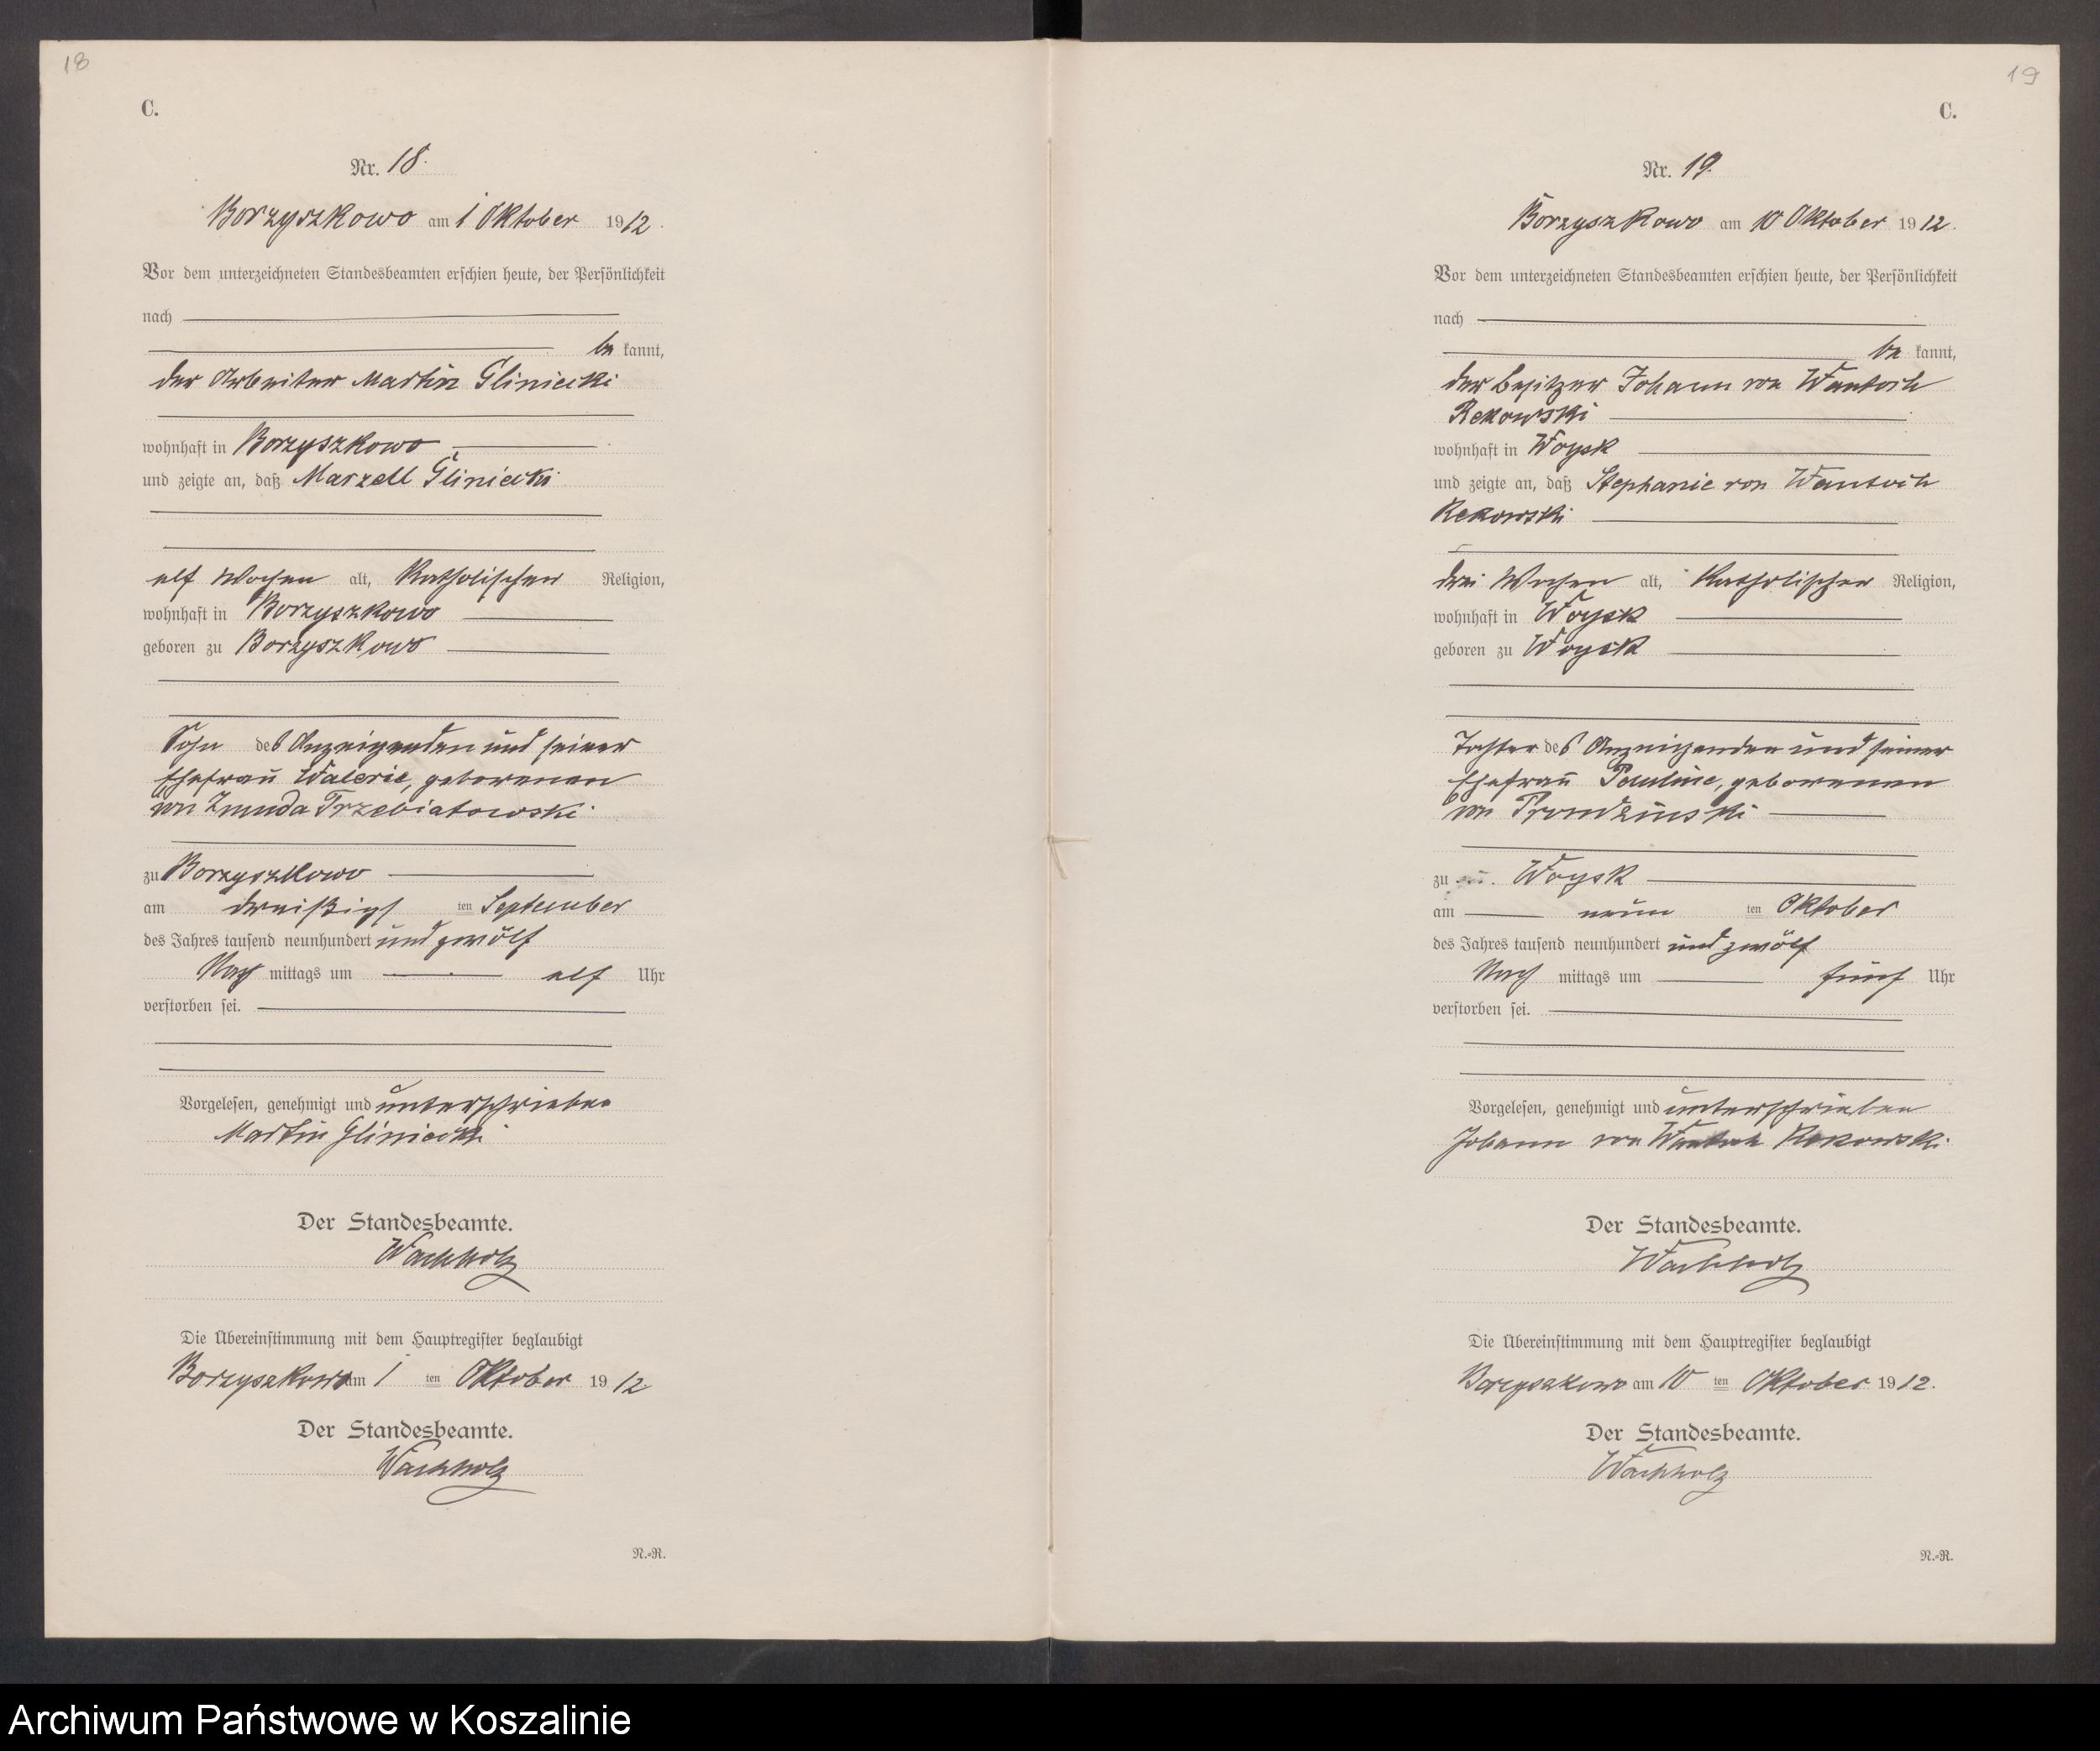 18
C.
Nr. 18.
Borzyszkowo am 1 Oktober 1912.
Vor dem unterzeichneten Standesbeamten erschien heute, der Persönlichkeit
nach
be kannt,
der Arbeiter Martin Gliniecki
wohnhaft in Borzyszkowo
und zeigte an, daß Marzell Gliniecki
elf Wochen alt, Katholischer Religion,
wohnhaft in Borzyszkowo
geboren zu Borzyszkowo
Sohn des Anzeigenden und seiner
Ehefrau Valerie, geborenen
von Zmuda Trzebiatowski
zu Borzyszkowo
am dreißigs ten September
des Jahres tausend neunhundert und zwölf
Nach mittags um elf Uhr
verstorben sei.
Vorgelesen, genehmigt und unterschrieben
Martin Gliniecki
Der Standesbeamte.
Wachholz
Die Übereinstimmung mit dem Hauptregister beglaubigt
Borzyszkowo am 1 ten Oktober 1912
Der Standesbeamte.
Wachholz
N.=R.
19
C.
Nr. 19.
Borzyszkowo am 10 Oktober 1912.
Vor dem unterzeichneten Standesbeamten erschien heute, der Persönlichkeit
nach
be kannt,
der Besitzer Johann von Wantoch
Rekowski
wohnhaft in Woysk
und zeigte an, daß Stephanie von Wantoch
Rekowski
drei Wochen alt, Katholischer Religion,
wohnhaft in Woysk
geboren zu Woysk
Tochter des Anzeigenden und seiner
Ehefrau Pauline, geborenen
von Prondzinski
zu Woysk
am neun ten Oktober
des Jahres tausend neunhundert und zwölf
Nach mittags um fünf Uhr
verstorben sei.
Vorgelesen, genehmigt und unterschrieben
Johann von Wantoch Rekowski.
Der Standesbeamte.
Wachholz
Die Übereinstimmung mit dem Hauptregister beglaubigt
Borzyszkowo am 10 ten Oktober 1912.
Der Standesbeamte.
Wachholz
N.=R.
Archiwum Państwowe w Koszalinie